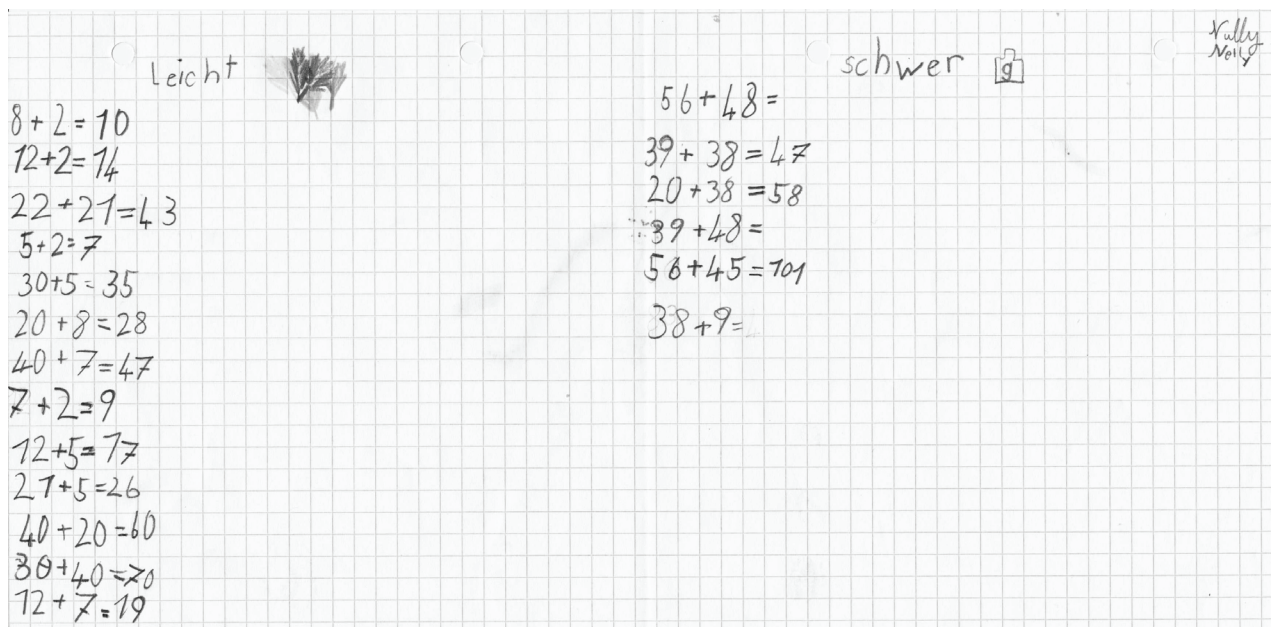 Leicht
8+2=10
12+2=14
22+21=43
5+2=7
30+5=35
20+8=28
40+7=47
7+2=9
12+5=17
21+5=26
40+20=60
30+40=70
12+7=19
schwer g
56+48=
39+38=47
20+38=58
39+48=
56+45=101
38+9=
Nelly